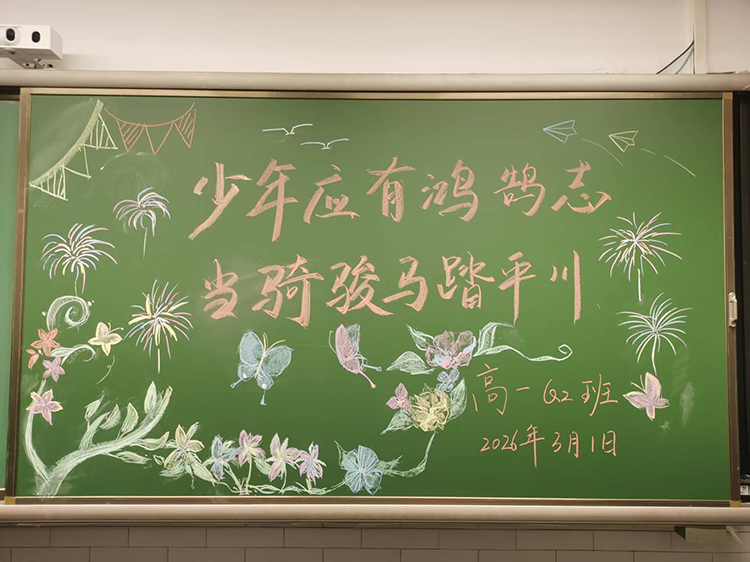 少年应有鸿鹄志
当骑骏马踏平川
高一Q2班
2026年3月1日